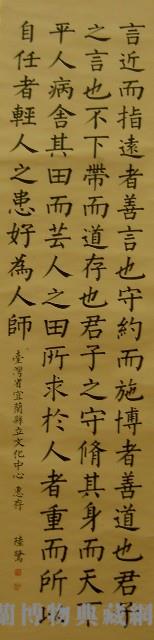 言近而指遠者善言也守約而施博者善道也君子
之言也不下帶而道存也君子之守脩其身而天下
平人病舍其田而芸人之田所求於人者重而所以
自任者輕人之患好為人師
臺灣省宜蘭縣立文化中心 惠存
蘭博物典藏網